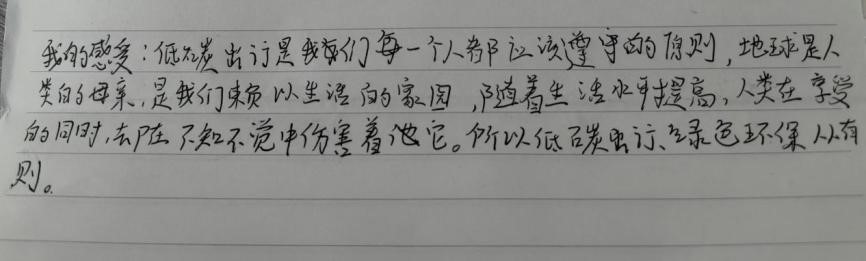 我的感受：低碳出行是我们每一个人都应该遵守的原则，地球是人
类的母亲，是我们赖以生活的家园，随着生活水平提高，人类在享受
的同时，却在不知不觉中伤害着她它。所以低碳出行、绿色环保人人有
则。